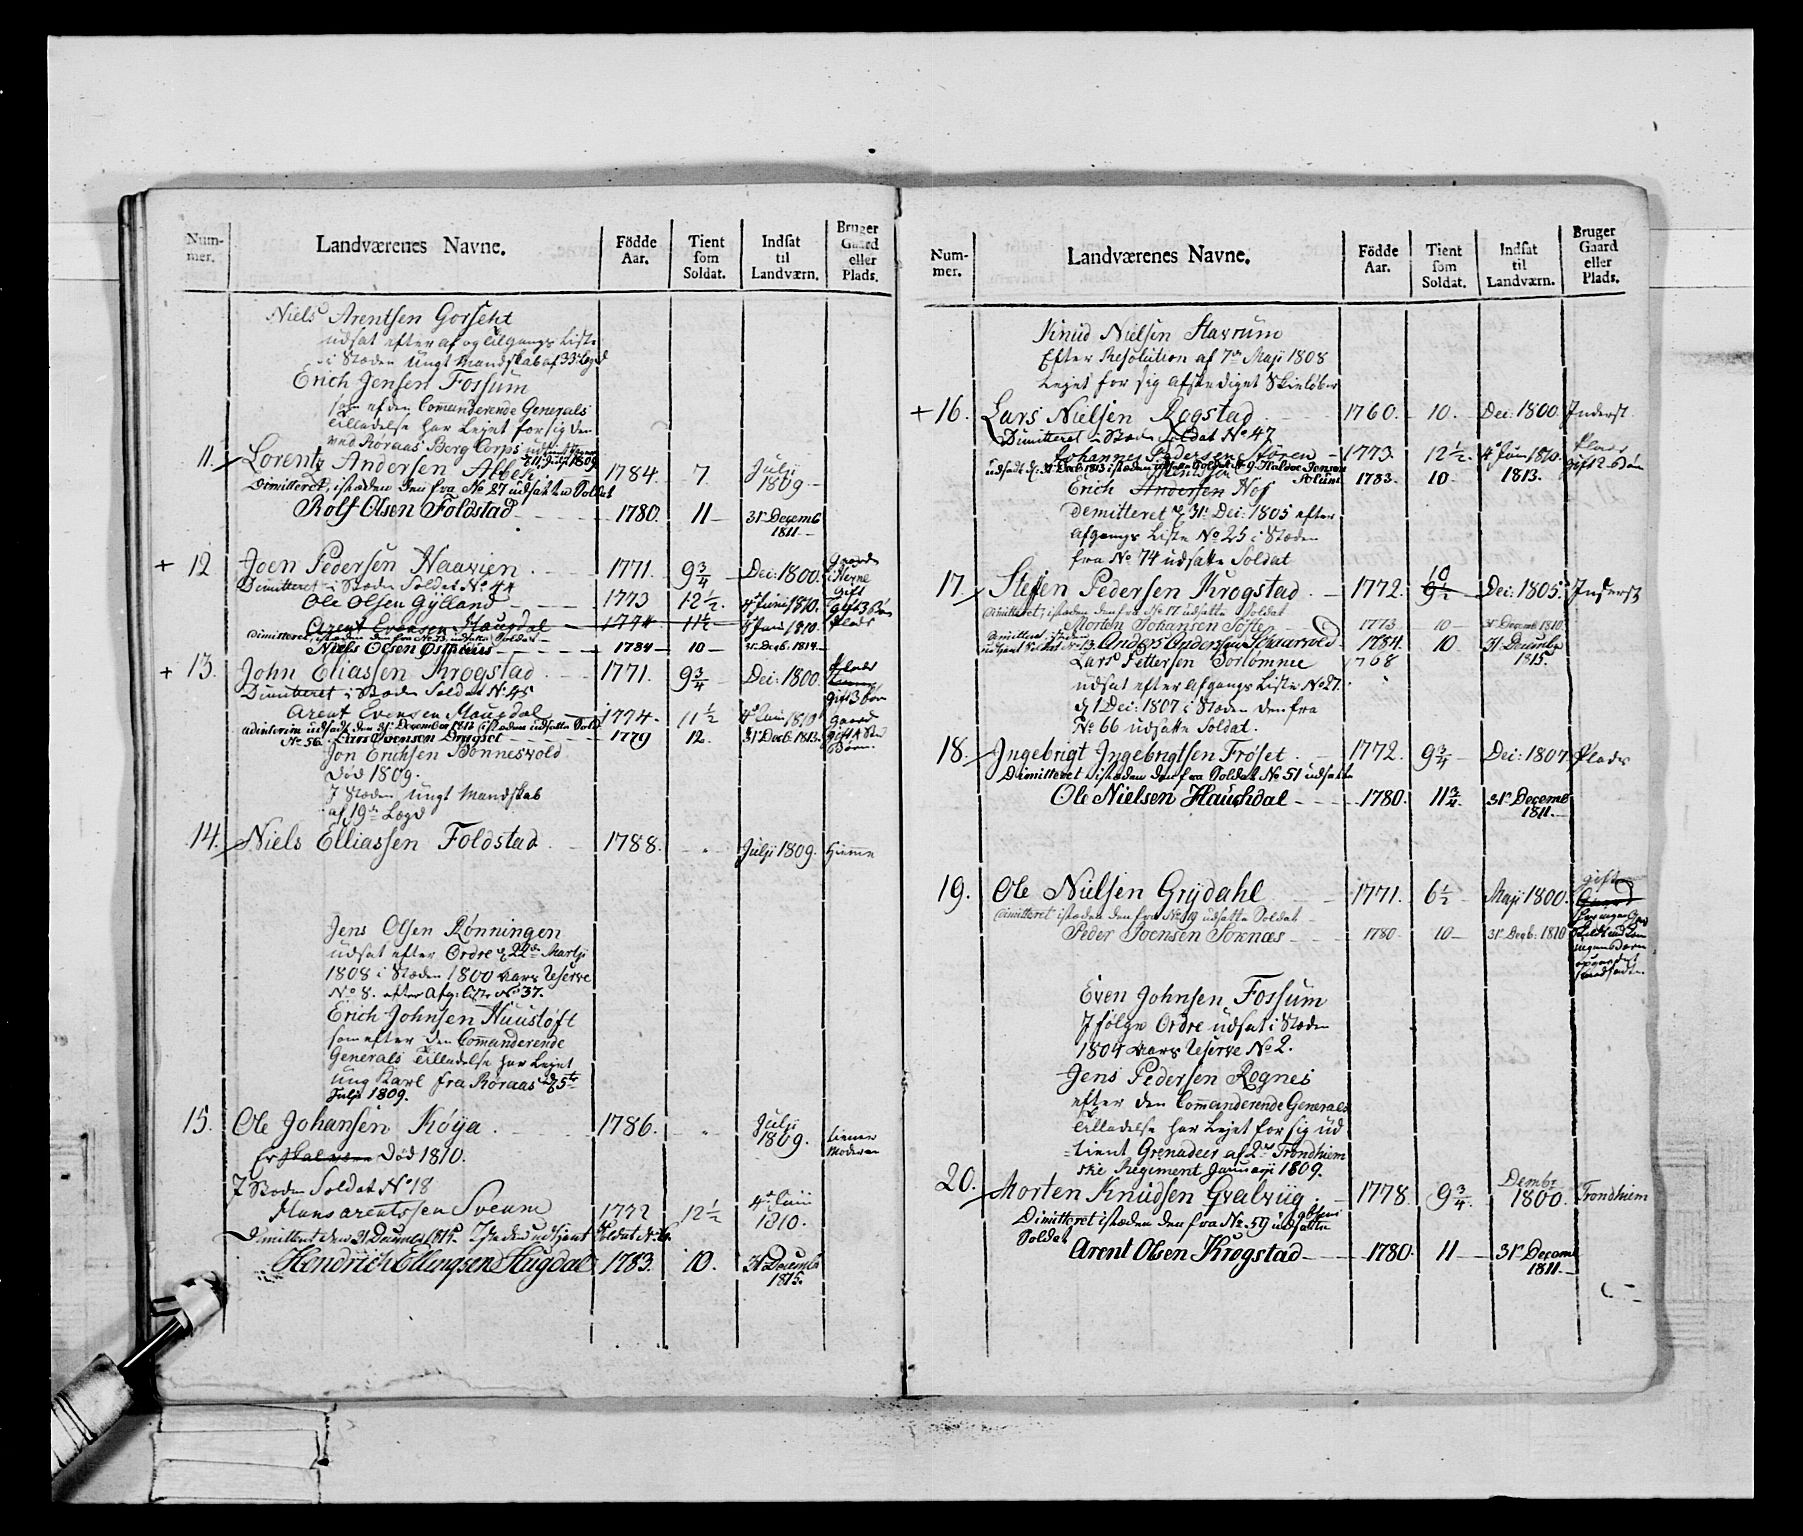 Num-
mer.
Landværenes Navne.
Födde
Aar.
Tient
som
Soldat.
Indsat
til
Landværn.
Bruger
Gaard
eller
Plads.
Niels Arentsen Gorseht
udsat efter af og tilgangs Liste
i Stæden Ungt Mandskab af 33 Lægd
Erich Jensen Fossum
som ef den Commanderende Generals
tilladelse har Lejet for sig den
ved Røraas Berg Corps
11. Lorentz Andersen Albek 1784. 7. Julji 1809
Dimitteret, istæden den fra No 27 udsatte Soldat
Rolf Olsen Foldstad 1780. 11 31t Decemb 1811
+ 12 Joen Pedersen Haavien 1771. 9 3/4 Dei: 1800. Gaard
Dimitteret i Stæden Soldat No 44
Ole Olsen Gylland 1773 12 1/2. 4d Junii 1810. Gift 3 Børn
Arent Evensen Haugdal 1774 11 1/2 4d Juni 1810. Plads
Dimitteret, istæden den fra No 33 udsatte Soldat
Niels Olsen Østhuus 1784 10 31 Decb. 1814
+ 13. John Eliassen Krogstad 1771. 9 3/4 Dei: 1800 Plads
Dimitteret i Stæden Soldat No 45 Gift 3 Børn
Arent Evensen Haugdal 1774. 11 1/2 4d Juni 1810 Gaard
adinterim udsadt den 31 December 1813 istæden udsatte Sold
No 56. Lars Olsen Dragset 1779 12. 31 Decb: 1813. Gift 4 Børn.
Jon Erichsen Bonnesvold
Død 1809.
I Stæden Ungt Mandskab
af 19de Lægd
14. Niels Elliassen Foldstad 1788. Julji 1809. Hiemme
Jens Olsen Rønningen
udsat efter Ordre af 22de Martji
1808 i Stæden 1800 Aars Reserve
No 8. efter Afg: Liste No 37.
Erich Johnsen Huusløft
som efter den Commanderende
Generals tilladelse har Lejet
ung Karl fra Røraas d 5te
Julji 1809.
15. Ole Johansen Køya 1786. Julji 1809. tiener Moderen
Er Død 1810.
I Stæden Soldat No 18
Hans Arentssen Sveum 1772 12 1/2 4d Juni 1810.
Dimitteret den 31 Decemb 1815. Istæden udtjent Soldat
Hendrich Ellingsen Hugdal 1783. 10. 31 Decemb 1815.
Num-
mer.
Landværenes Navne.
Födde
Aar.
Tient
som
Soldat.
Indsat
til
Landværn.
Bruger
Gaard
eller
Plads.
Knud Nielsen Stavrum
Efter Resolution af 7de Maji 1808
Lejet for sig afskediget Skieløber
+ 16. Lars Nielsen Rogstad 1760. 10. Dei: 1800. Inderst
Dimitteret i Stæden Soldat No 47
Johannes Pedersen Støren 1773. 12 1/2. 4d Juni 1810. Plads Gift 2 Børn
1783. 10 1813.
Erich Andersen Hof
demitteret d 31 Dei: 1805 efter
Afgangs Liste No 25 i Stæden
fra No 74 udsatte Soldat
17. Steffen Pedersen Krogstad 1772. 10 9 1/2 Dei: 1805. Inderst
dimitteret, istæden den fra No 17 udsatte Soldat
Morten Johansen 1773 10 31 Decemb 1810
Anders Andersen Skaarvold 1784. 10 31 Decemb 1815.
Lars Pettersen Sorlømme 1768
udsat efter Afgangs Liste No 27.
d 1 Dei: 1807 i Stæden den fra
No 66 udsatte Soldat.
18. Ingebrigt Ingebrigtsen Frøset 1772. 9 3/4 Dei: 1807. Plads
Dimitteret istæden den fra Soldat No 51 udsatte
Ole Nielsen Hauchdal 1780. 11 3/4. 31t Decemb 1811.
19. Ole Nielsen Grydahl 1771. 6 1/2 Maji 1800. gift
dimitteret istæden den fra No 19 udsatte Soldat
Peder Joensen Soknæs 1780 10 31 Decb: 1810
Even Johnsen Fossum
I følge Ordre udsat i Stæden
1804 Aars Reserve No 2.
Jens Pedersen Rognes
efter den Commanderende Generals
tilladelse har Lejet for sig ud
tient Grenadeer af 2det Trondhiem
ske Regiment Januarji 1809.
20. Morten Knudsen Gralviig 1778. 9 3/4. Dembr 1800. Trondhiem
Dimitteret istæden den fra No 59 udsatte
Soldat
Arent Olsen Krogstad 1780. 11 31t Decemb 1811.